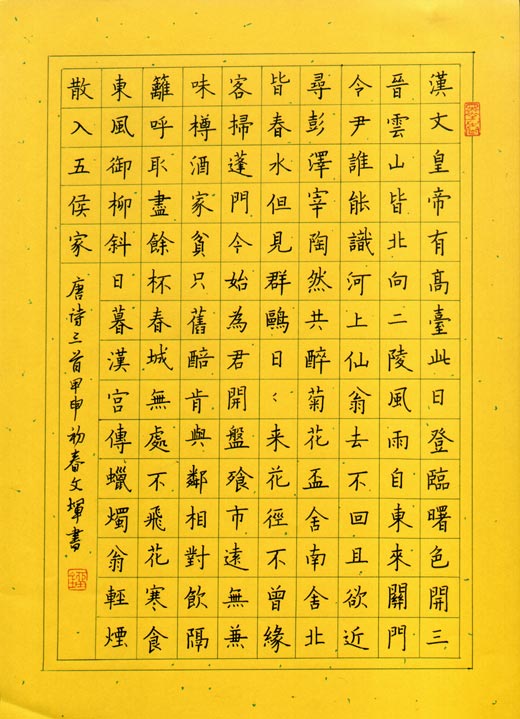 漢文皇帝有高臺此日登臨曙色開三
晉雲山皆北向二陵風雨自東來關門
令尹誰能識河上仙翁去不回且欲近
尋彭澤宰陶然共醉菊花盃舍南舍北
皆春水但見群鷗日〻来花徑不曾緣
客掃蓬門今始為君開盤飱市遠無兼
味樽酒家貧只舊醅肯與鄰相對飲隔
籬呼取盡餘杯春城無處不飛花寒食
東風御柳斜日暮漢宮傳蠟燭翁輕煙
散入五侯家 唐诗三首甲申初春文書